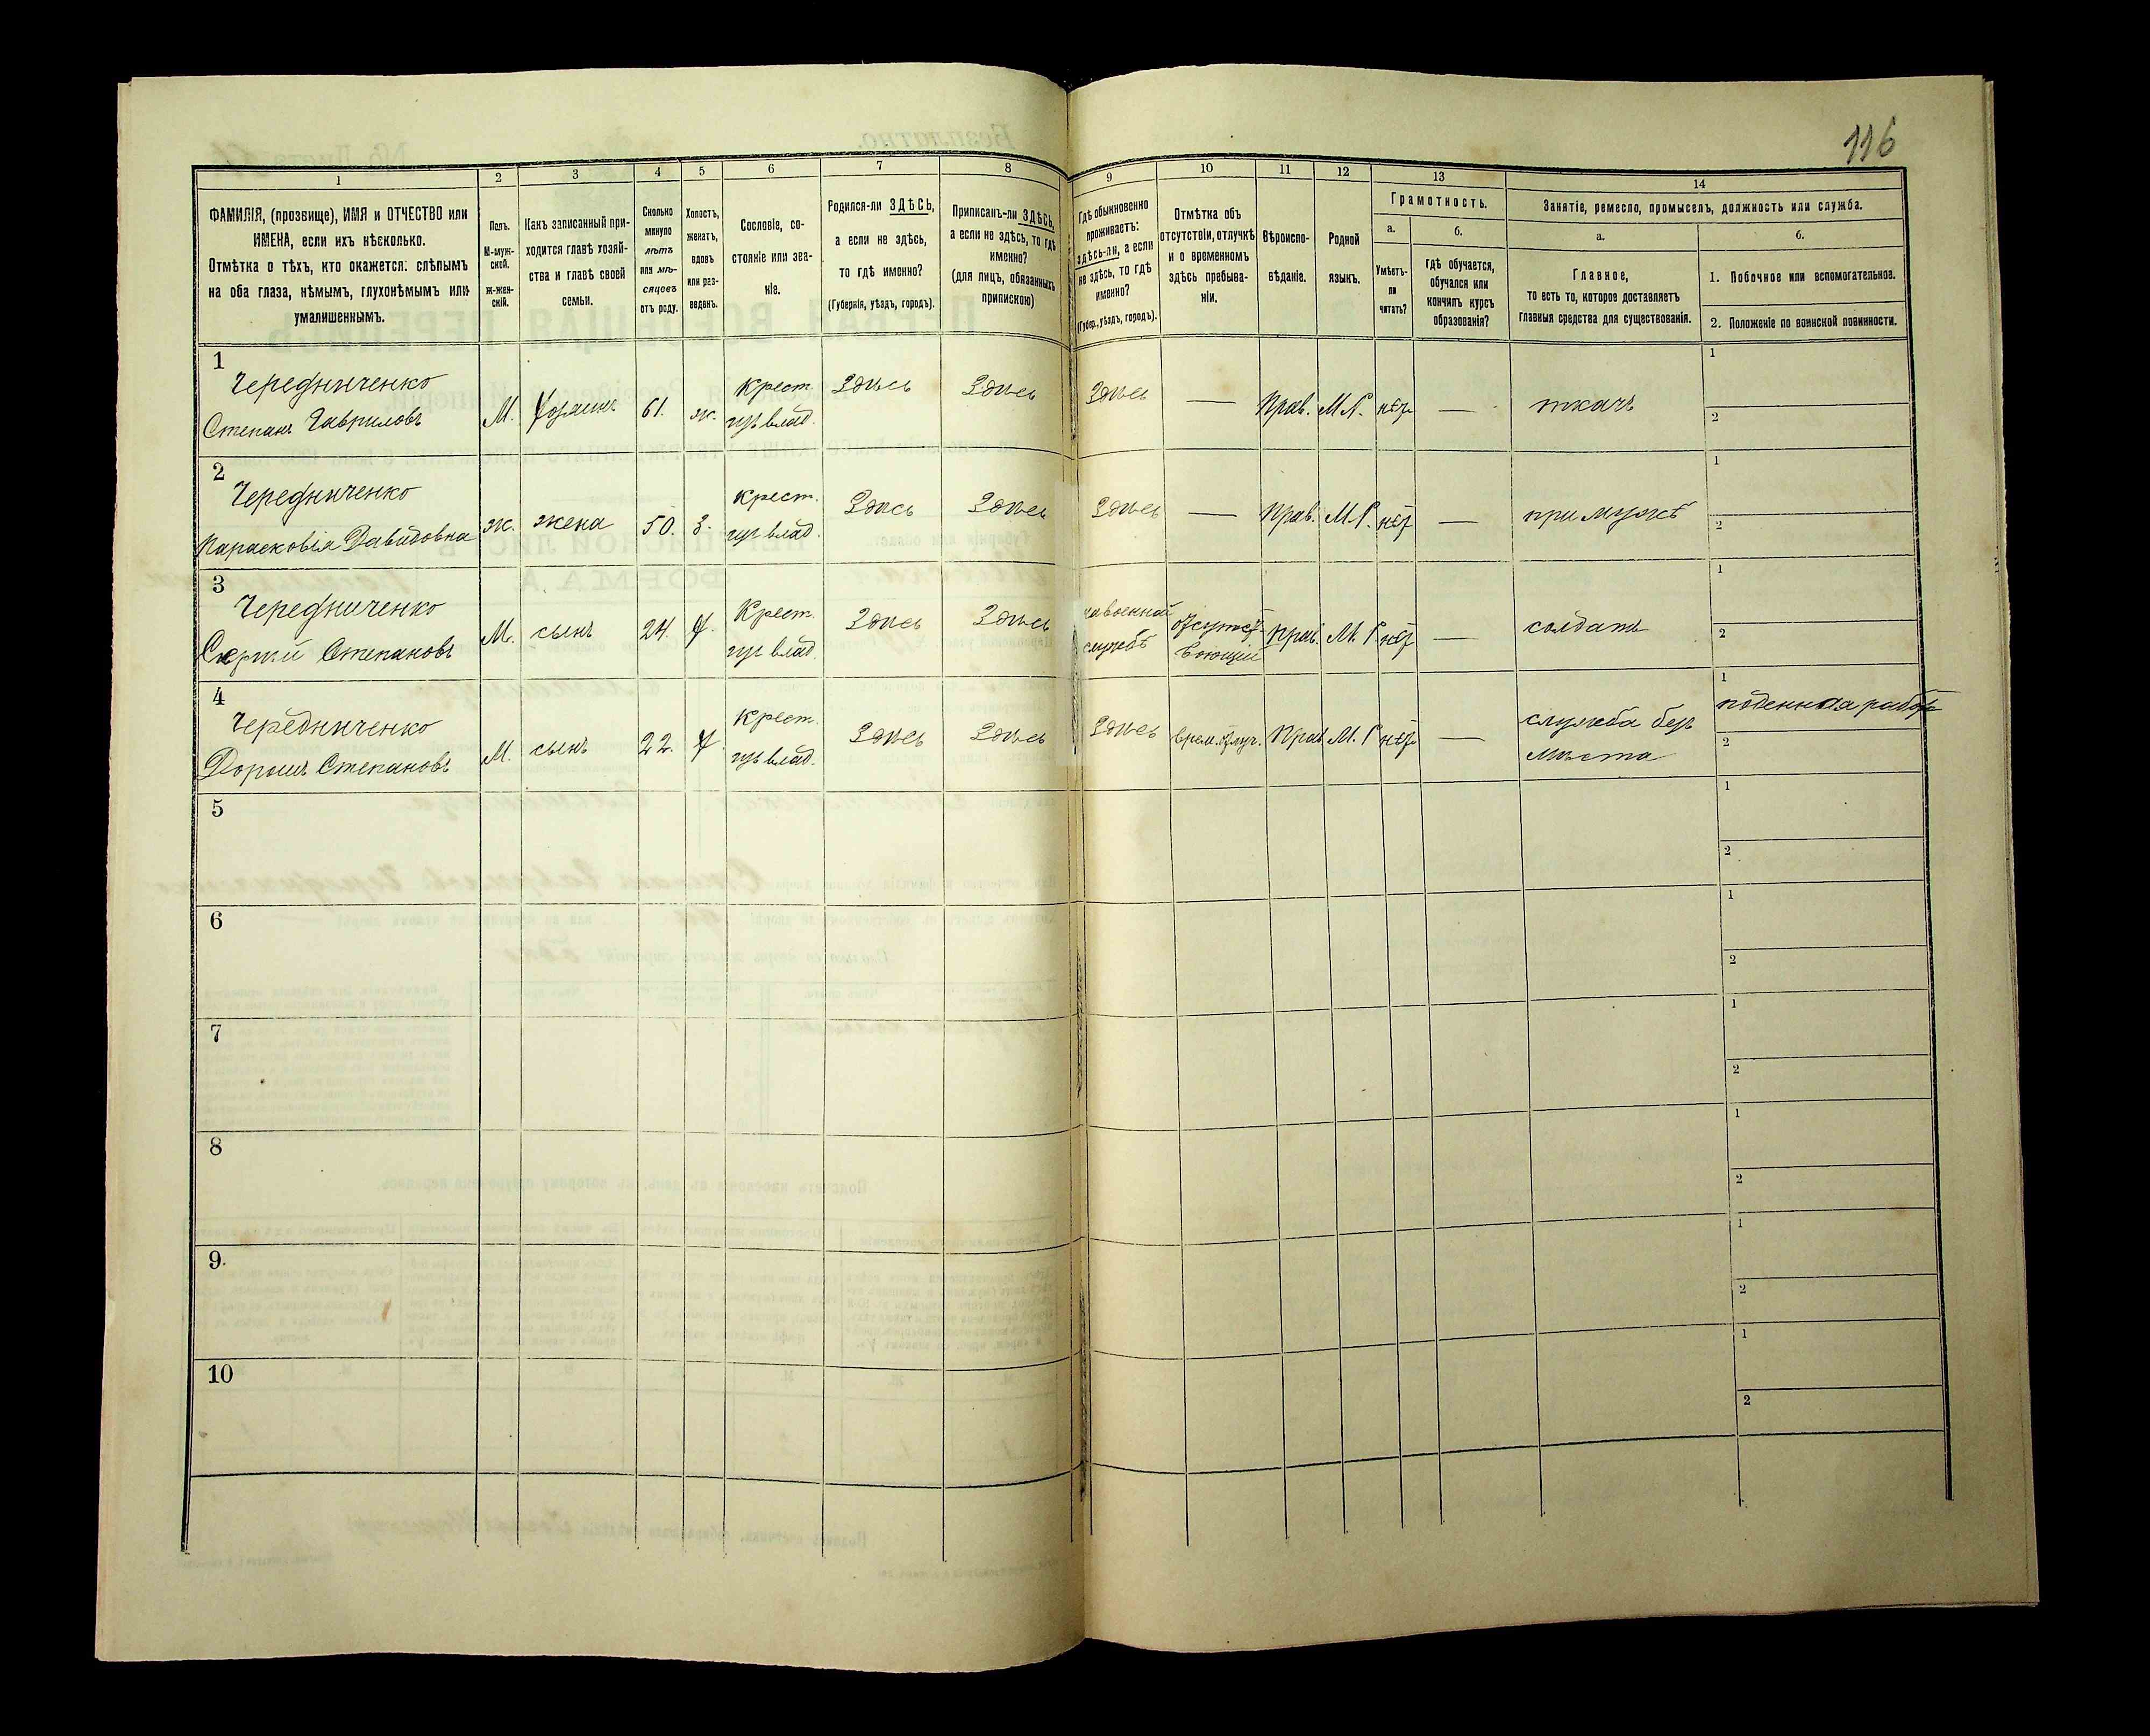 116
1
2
3
4
5
6
7
8
9
10
11
12
13
14
ФАМИЛІЯ, (прозвище), ИМЯ и ОТЧЕСТВО или
ИМЕНА, если ихъ нѣсколько.
Отмѣтка о тѣхъ, кто окажется: слѣпымъ
на оба глаза, нѣмымъ, глухонѣмымъ или
умалишеннымъ.
Полъ.
М-муж-
ской.
Ж-жен-
скій.
Какъ записанный при-
ходится главѣ хозяй-
ства и главѣ своей
семьи.
Сколько
минуло
лѣтъ
или мѣ-
сяцевъ
отъ роду.
Холостъ,
женатъ,
вдовъ
или раз-
веденъ.
Сословіе, со-
стояніе или зва-
ніе.
Родился-ли ЗДѢСЬ,
а если не здѣсь,
то гдѣ именно?
(Губернія, уѣздъ, городъ).
Приписанъ-ли ЗДѢСЬ,
а если не здѣсь, то гдѣ
именно?
(для лицъ, обязанныхъ
припискою)
Гдѣ обыкновенно
проживаетъ:
здѣсь-ли, а если
не здѣсь, то гдѣ
именно?
(Губер., уѣздъ, городъ).
Отмѣтка объ
отсутствіи, отлучкѣ
и о временномъ
здѣсь пребыва-
ніи.
Вѣроиспо-
вѣданіе.
Родной
языкъ.
Грамотность.
а.
Умѣетъ-
ли
читать?
б.
гдѣ обучается,
обучался или
кончилъ курсъ
образованія?
Занятіе, ремесло, промыселъ, должность или служба.
а.
Главное,
то есть то, которое доставляетъ
главныя средства для существованія.
б.
1. Побочное или вспомогательное.
2. Положеніе по воинской повинности.
1
Чередниченко
Степанъ Гавриловъ
М.
хозяинъ
61.
ж.
Крест.
изъ влад.
Здѣсь
Здѣсь
Здѣсь
—
Прав.
М.Р.
нѣт
—
ткачъ
1
2
2
Чередниченко
Парасковія Давидовна
ж.
жена
50.
з.
Крест.
изъ влад.
Здѣсь
Здѣсь
Здѣсь
—
Прав.
М.Р.
нѣт
—
при мужѣ
1
2
3
Чередниченко
Сергій Степановъ
М.
сынъ
24.
х.
Крест.
изъ влад.
Здѣсь
Здѣсь
на военной
службѣ
отсутст-
вующій
Прав.
М.Р.
нѣт
—
солдатъ
1
2
4
Чередниченко
Дорошъ Степановъ
М.
сынъ
22.
х.
Крест.
изъ влад.
Здѣсь
Здѣсь
Здѣсь
врем. отлуч.
Прав.
М.Р.
нѣт
—
служба безъ
мѣста
1
поденная работ
2
5
1
2
6
1
2
7
1
2
8
1
2
9.
1
2
10
1
2